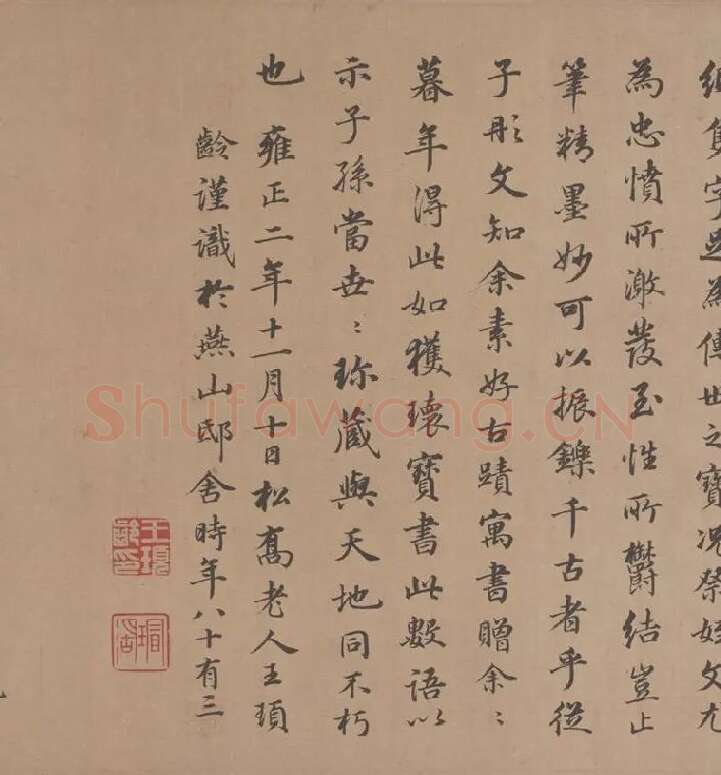 紙隻字足為傳世之寶况祭姪文尤
為忠憤所激發至性所鬱結豈止
筆精墨妙可以振鑠千古者乎從
子彤文知余素好古蹟寓書贈余〻
暮年得此如獲瓌寶書此數語以
示子孫當世〻珍藏與天地同不朽
也雍正二年十一月十日松喬老人王頊
齡謹識於燕山邸舍時年八十有三
王頊齡印
瑁湖
Shufawang.CN